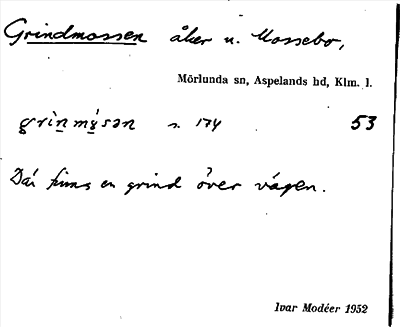 Grindmossen åker u. Mossebo,
Mörlunda sn, Aspelands hd, Klm. l.
grinmỳsən s. 174 53
Där finns en grind över vägen.
Ivar Modéer 1952